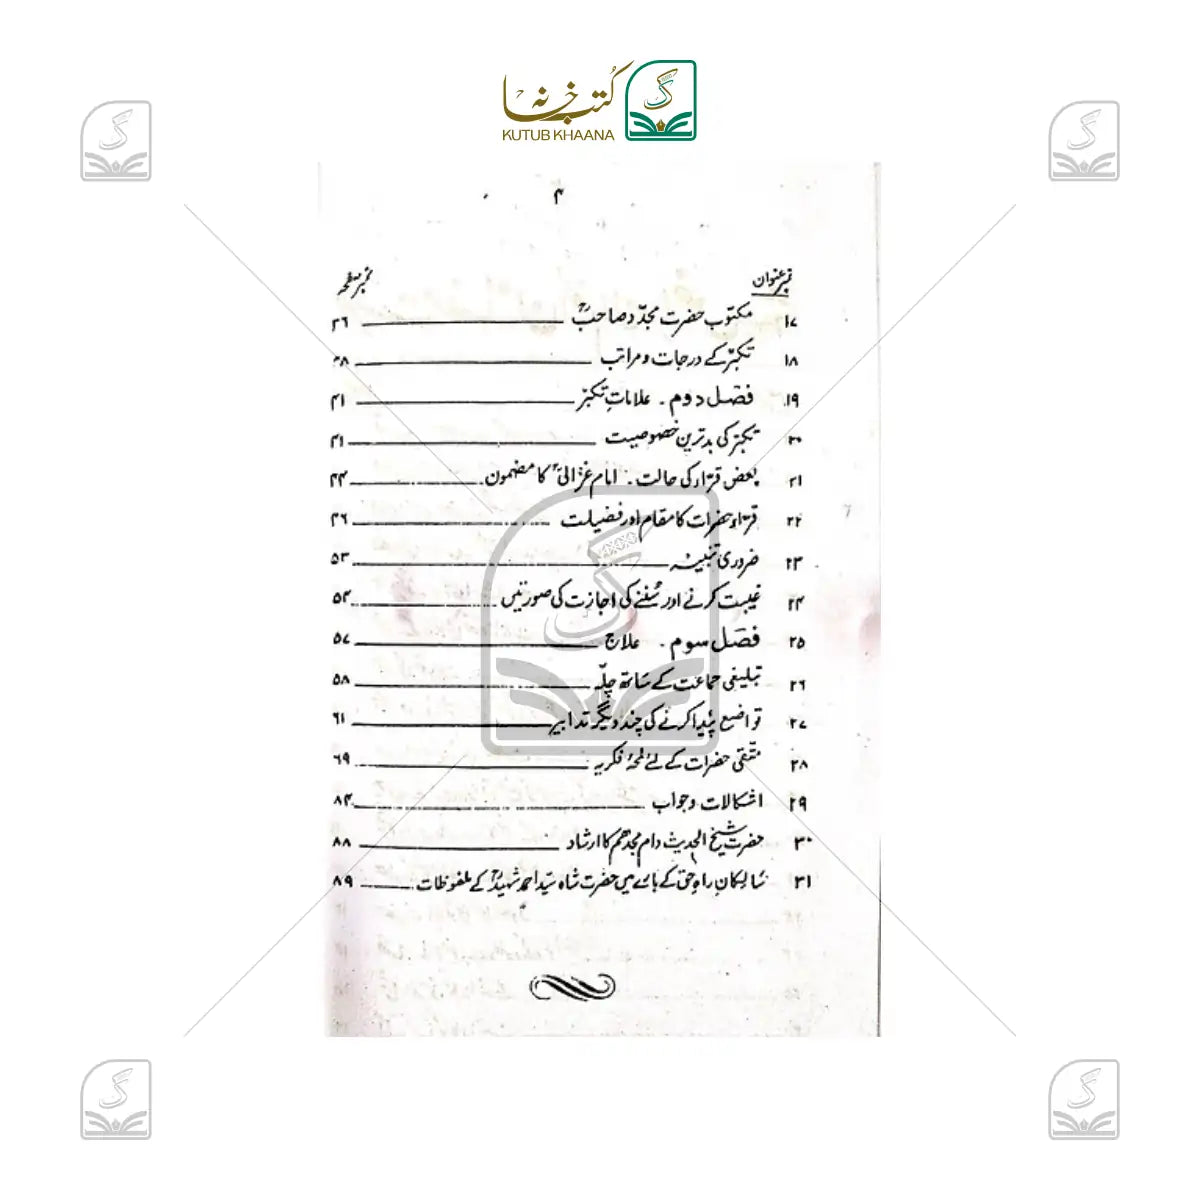 کتب خانہ
KUTUB KHAANA
۴
نمبر عنوان نمبر صفحہ
۱۷ مکتوب حضرت مجدّد صاحبؒ ۳۶
۱۸ تکبّر کے درجات و مراتب ۳۸
۱۹ فصل دوم۔ علاماتِ تکبّر ۴۱
۲۰ تکبّر کی بدترین خصوصیت ۴۱
۲۱ بعض قرّاء کی حالت۔ امام غزالیؒ کا مضمون ۴۴
۲۲ قرّاء حضرات کا مقام اور فضیلت ۴۶
۲۳ ضروری تنبیہ ۵۳
۲۴ غیبت کرنے اور سُننے کی اجازت کی صورتیں ۵۴
۲۵ فصل سوم۔ علاج ۵۷
۲۶ تبلیغی جماعت کے ساتھ چلّہ ۵۸
۲۷ تواضع پیدا کرنے کی چند دیگر تدابیر ۶۱
۲۸ متّقی حضرات کے لئے لمحۂ فکریہ ۶۹
۲۹ اشکالات و جواب ۸۴
۳۰ حضرت شیخ الحدیث دام مجدہم کا ارشاد ۸۸
۳۱ سالکانِ راہِ حق کے بارے میں حضرت شاہ سیّد احمد شہیدؒ کے ملفوظات ۸۹